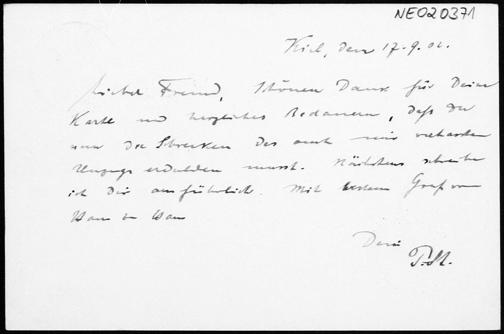 NEO20371
Kiel, den 17.9.02.
Lieber Freund, schönen Dank für Deine
Karte und herzliches Bedauern, daß Du
nun die Schrecken des auch mir verhassten
Umzugs erdulden musst. Nächstens schreibe
ich Dir ausführlich. Mit Gruß von
Haus zu Haus
Dein